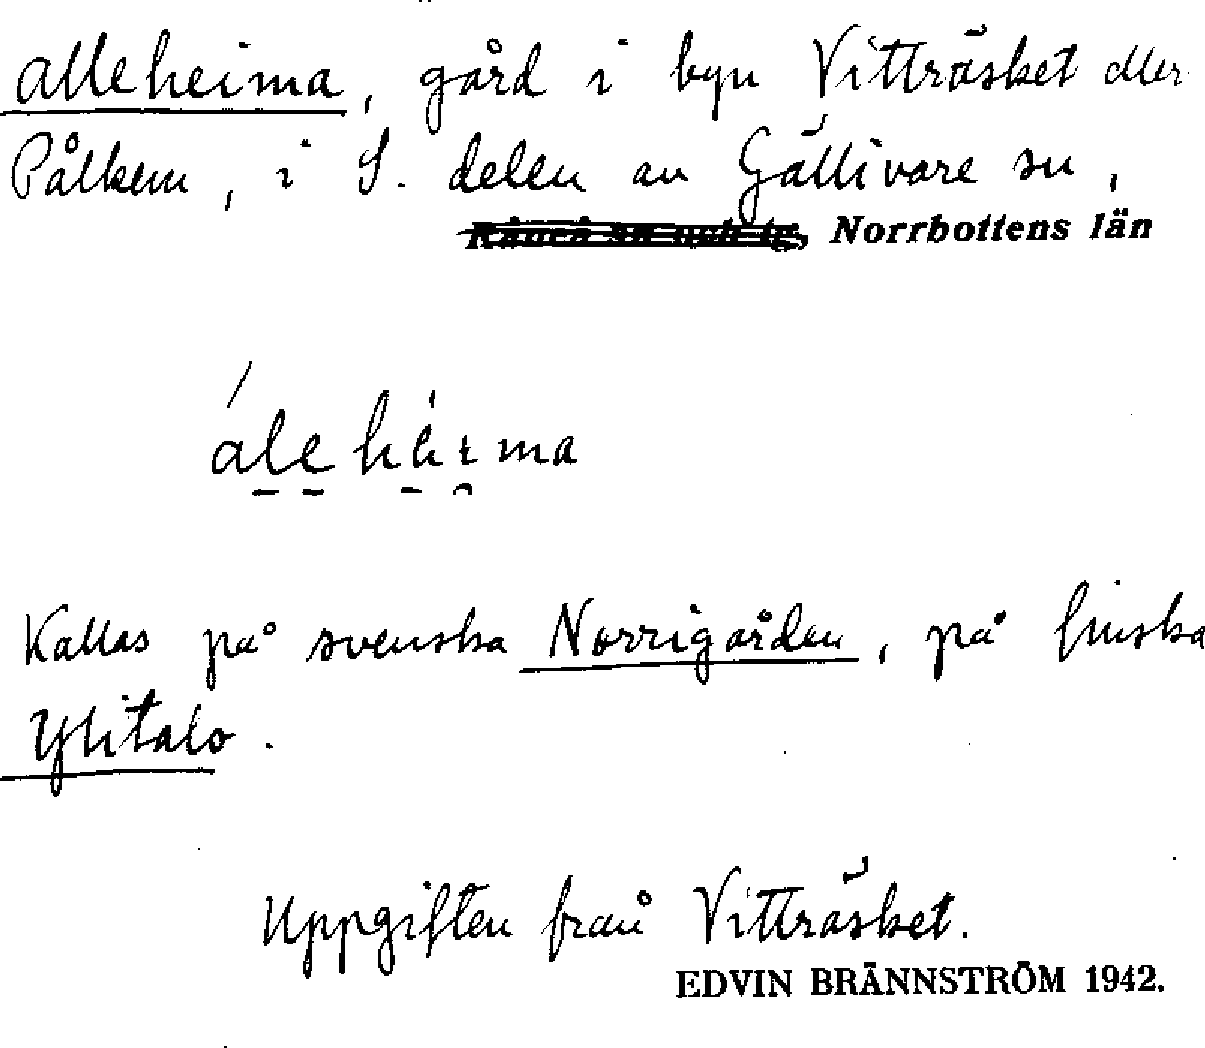 alleheima, gård i byn Vitträsket eller
Pålkem, i S. delen av Gällivare sn,
Råneå sn och tg, Norrbottens län
Kallas på svenska Norrigården, på finska
Ylitalo.
Uppgiften från Vitträsket.
EDVIN BRÄNNSTRÖM 1942.